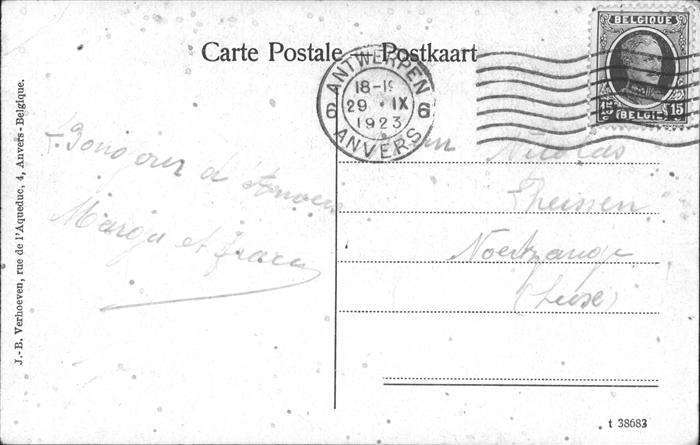 Carte Postale — Postkaart
BELGIQUE
15 15
BELGIË
ANTWERPEN
18-19
6 29 IX 6
1923
ANVERS
Bonjour d'Anvers
et
Nicolas
Theissen
Noertzange
(Luxe)
J.-B. Verhoeven, rue de l'Aqueduc, 4, Anvers - Belgique.
t 38683